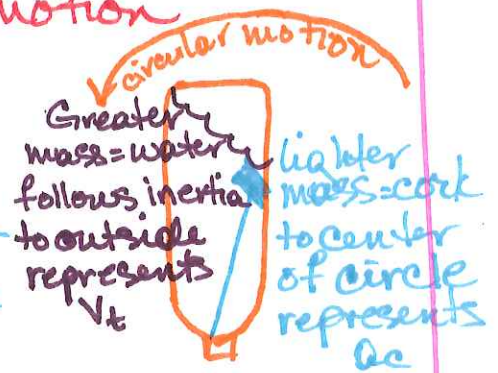 motion
circular motion
Greater
mass=water
follows inertia
to outside
represents
Vt
lighter
mass=cork
to center
of circle
represents
ac